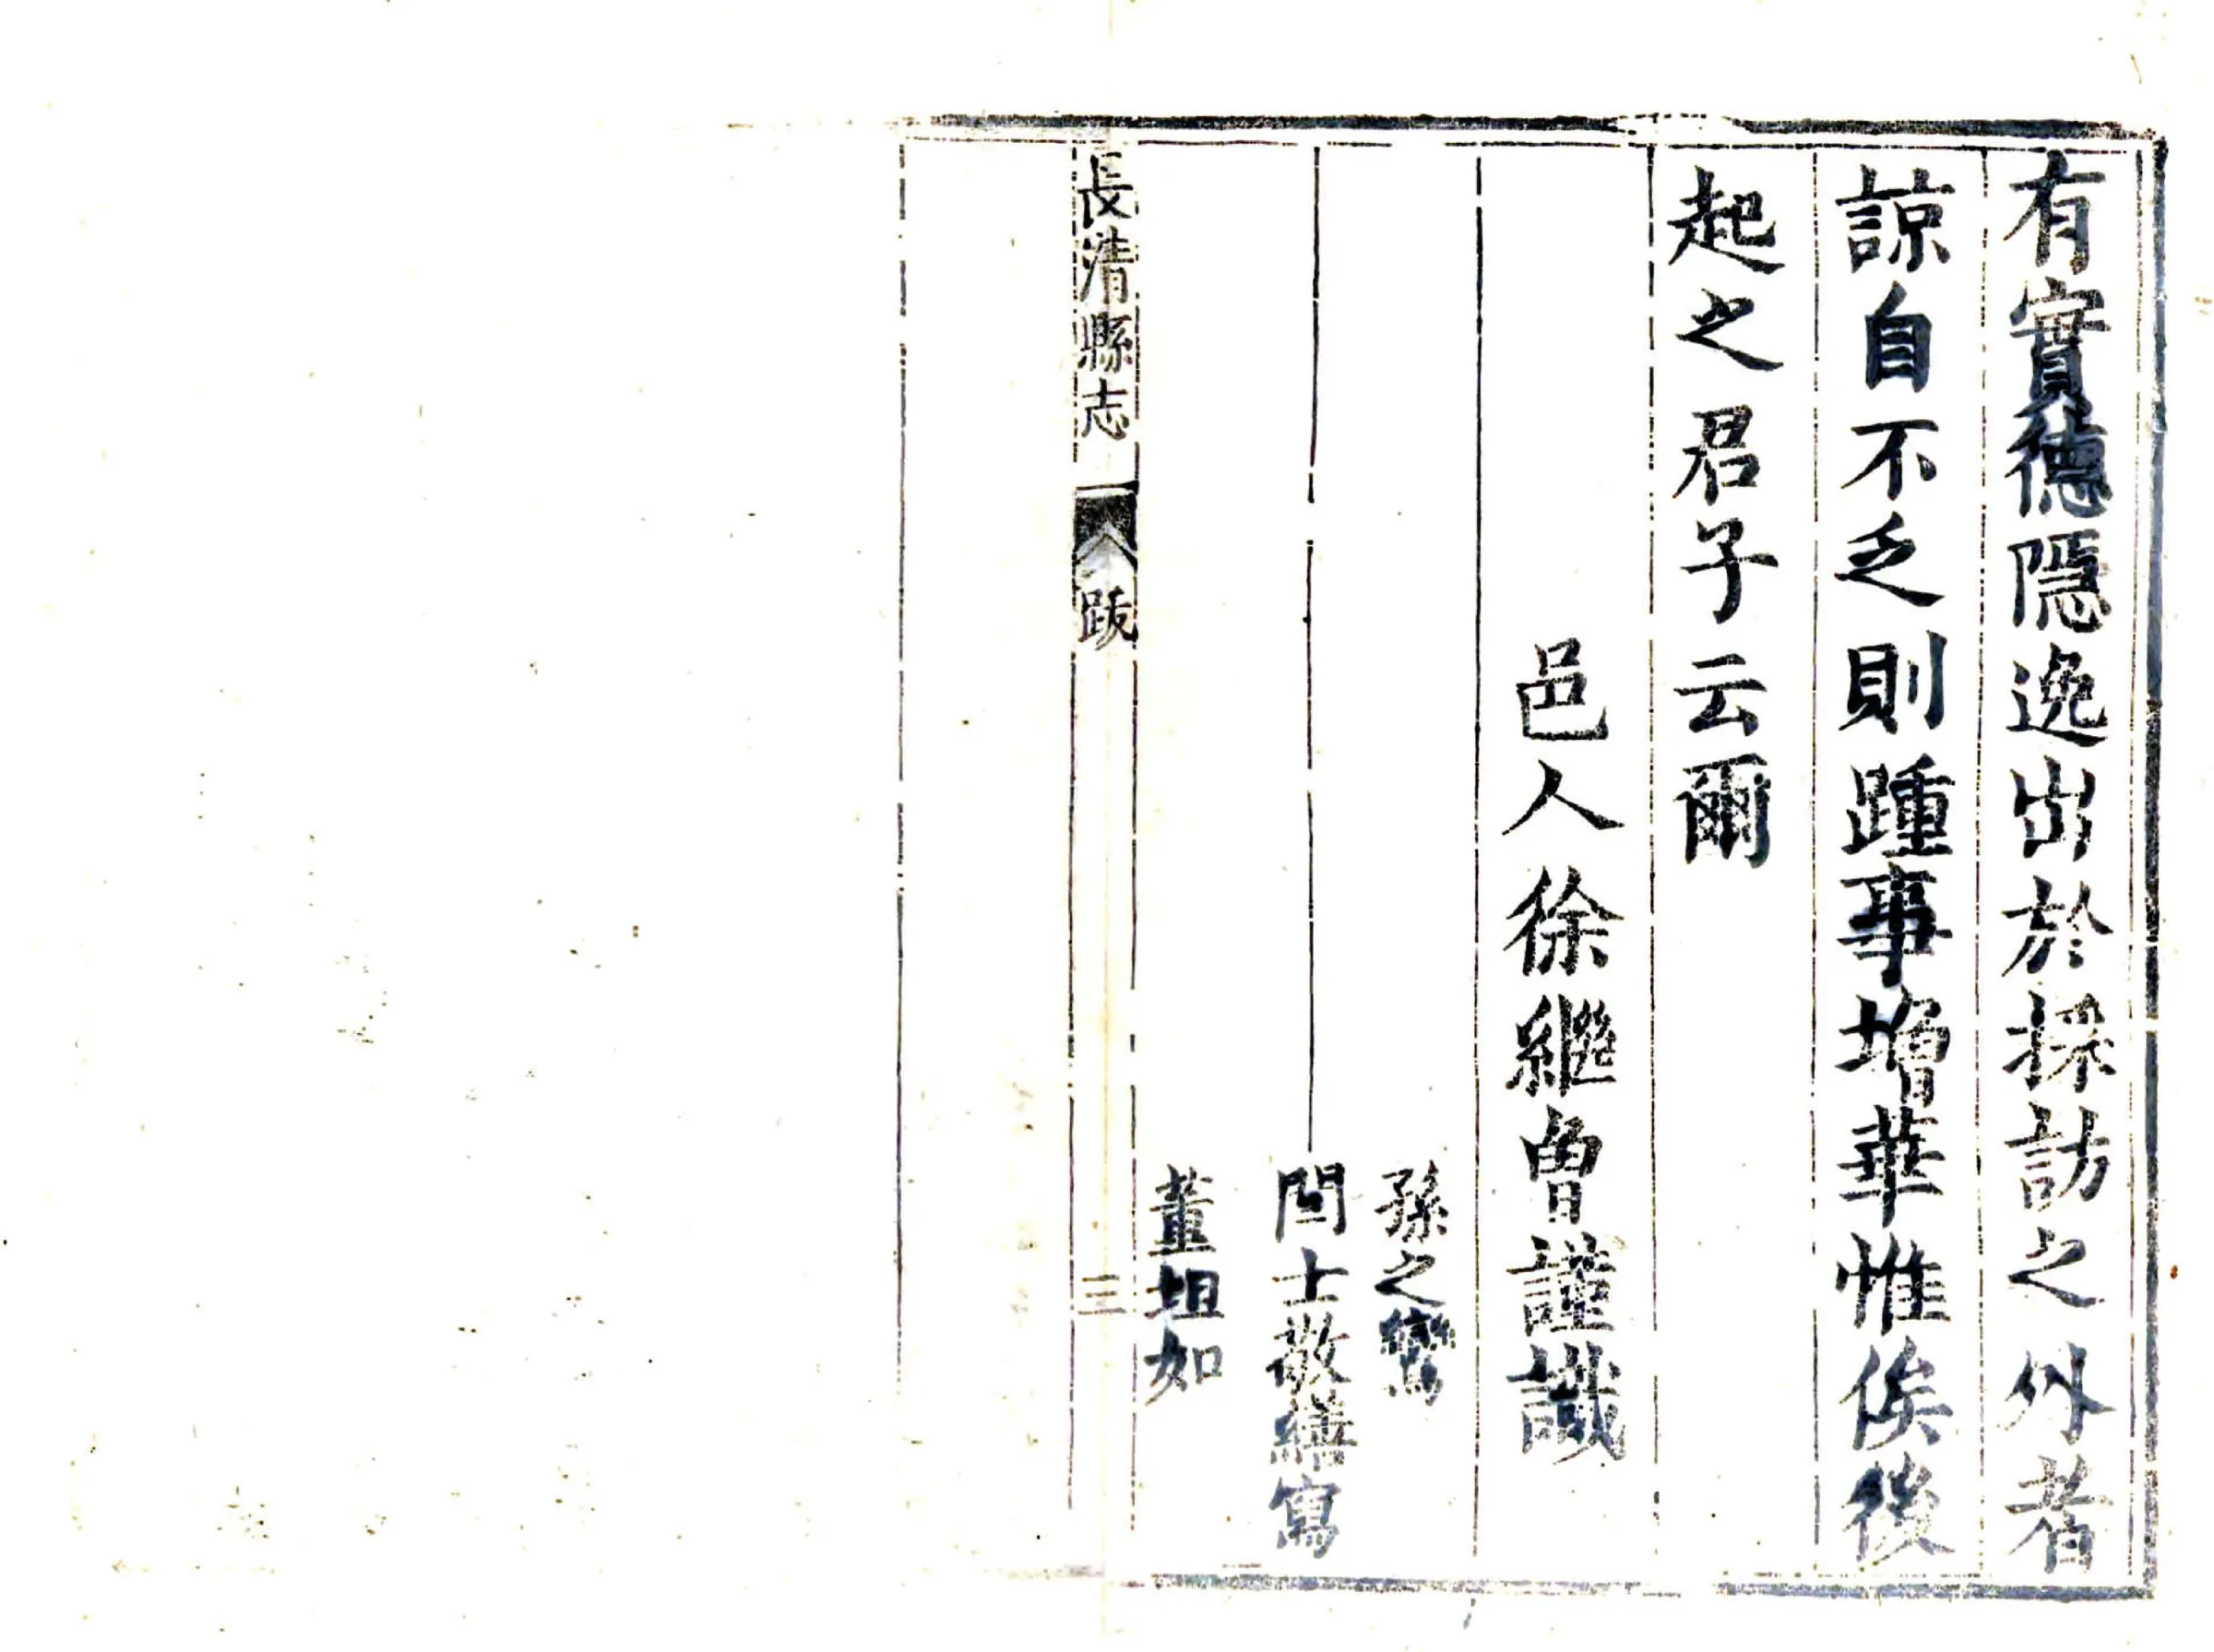 有實德隱逸出於採訪之外者
諒自不乏則踵事增華惟俟後
起之君子云爾
邑人徐繼曾謹識
孫之鸞
閆士敬繕寫
董坦如
長清縣志
跋
三